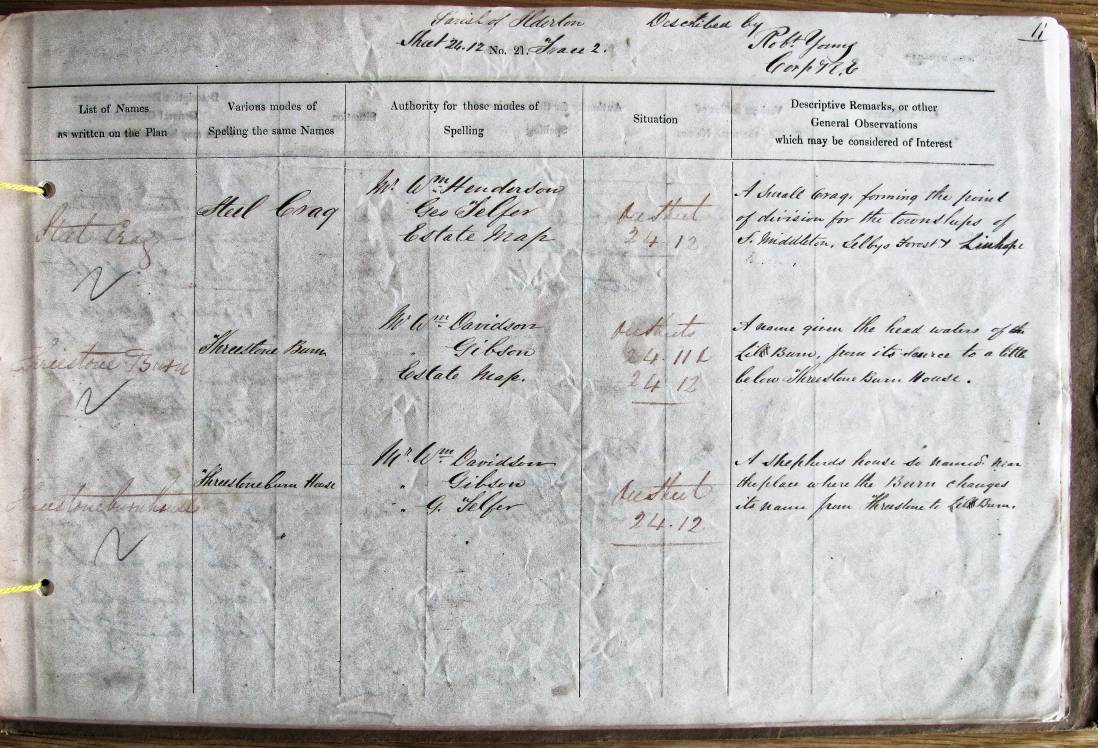 Parish of Ilderton
Described by
11
Sheet 24.12 No. 21. Trace 2.
Robt. Young
Corpl R.E
List of Names
as written on the Plan
Various modes of
Spelling the same Names
Authority for those modes of
Spelling
Situation
Descriptive Remarks, or other
General Observations
which may be considered of Interest
Steel Crag
Steel Crag
Mr. Wm. Henderson
Geo Telfer
Estate Map
On Sheet
24.12
A small Crag, forming the point
of division for the townships of
S. Middleton, Selbys Forest & Linhope
Threestone Burn
Threestone Burn
Mr Wm. Davidson
" Gibson
Estate Map.
On Sheets
24.11 &
24.12
A name given the head waters of the
Lill Burn, from its source to a little
below Threestone Burn House.
Threestoneburnhouse
Threestoneburn House
Mr. Wm. Davidson
" Gibson
" G. Telfer
On Sheet
24.12
A shepherds house so named. near
the place where the Burn changes
its name from Threestone to Lill Burn.